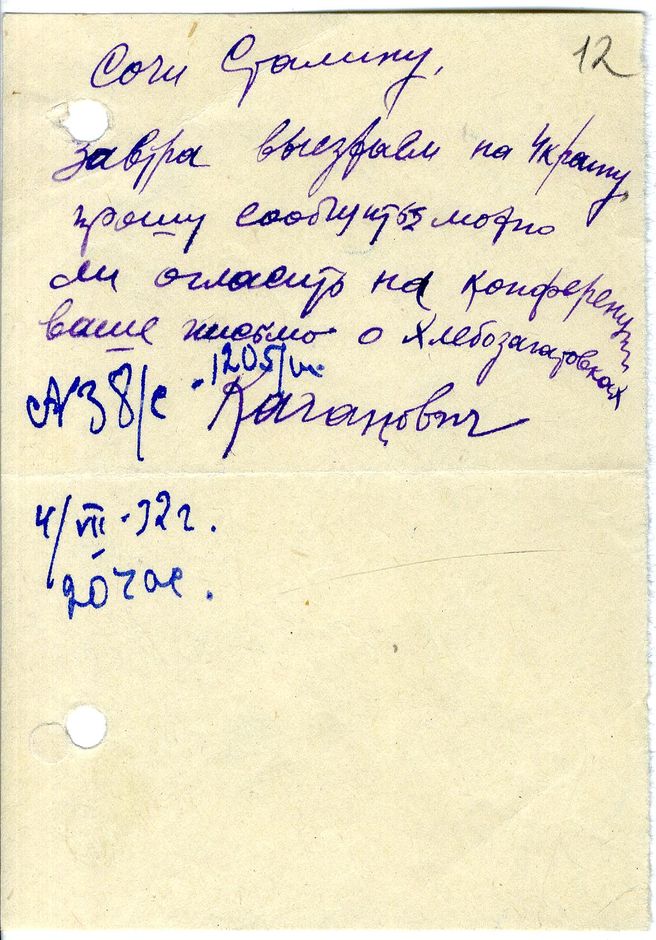 12
Сочи Сталину,
Завтра выезжаем на Украину,
прошу сообщить можно
ли огласить на конференции
ваше письмо о хлебозаготовках
№ 38/с 1205/ш.
Каганович
4/VII-32 г.
20 час.